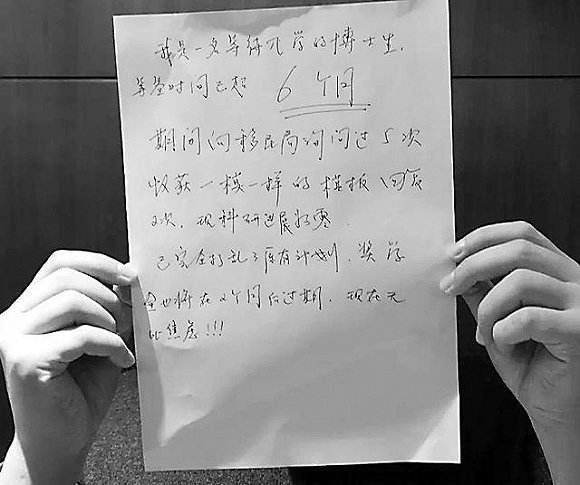 我是一名等待入学的博士生,
等签时间已超 6个月
期间向移民局询问过5次
收获一模一样的模板回复
2次, 现科研进展为零.
已完全打乱了原有计划, 奖学
金也将在2个月后过期, 现在无
比焦虑!!!